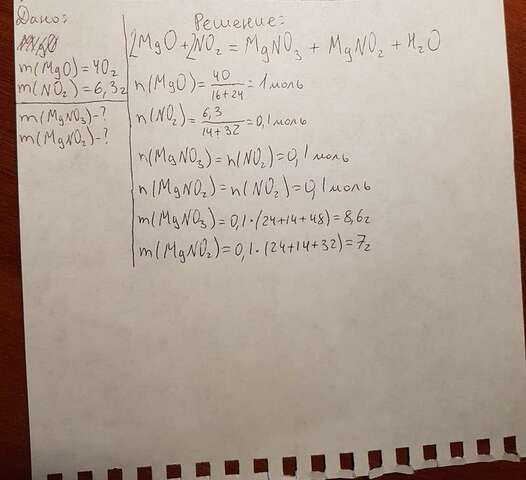 Дано:
m(MgO)=40г
m(NO₂)=6,3г
m(MgNO₃)-?
m(MgNO₂)-?
Решение:
2MgO+2NO₂=MgNO₃+MgNO₂+H₂O
n(MgO)=40/16+24=1моль
n(NO₂)=6,3/14+32=0,1моль
n(MgNO₃)=n(NO₂)=0,1моль
n(MgNO₂)=n(NO₂)=0,1моль
m(MgNO₃)=0,1·(24+14+48)=8,6г
m(MgNO₂)=0,1·(24+14+32)=7г